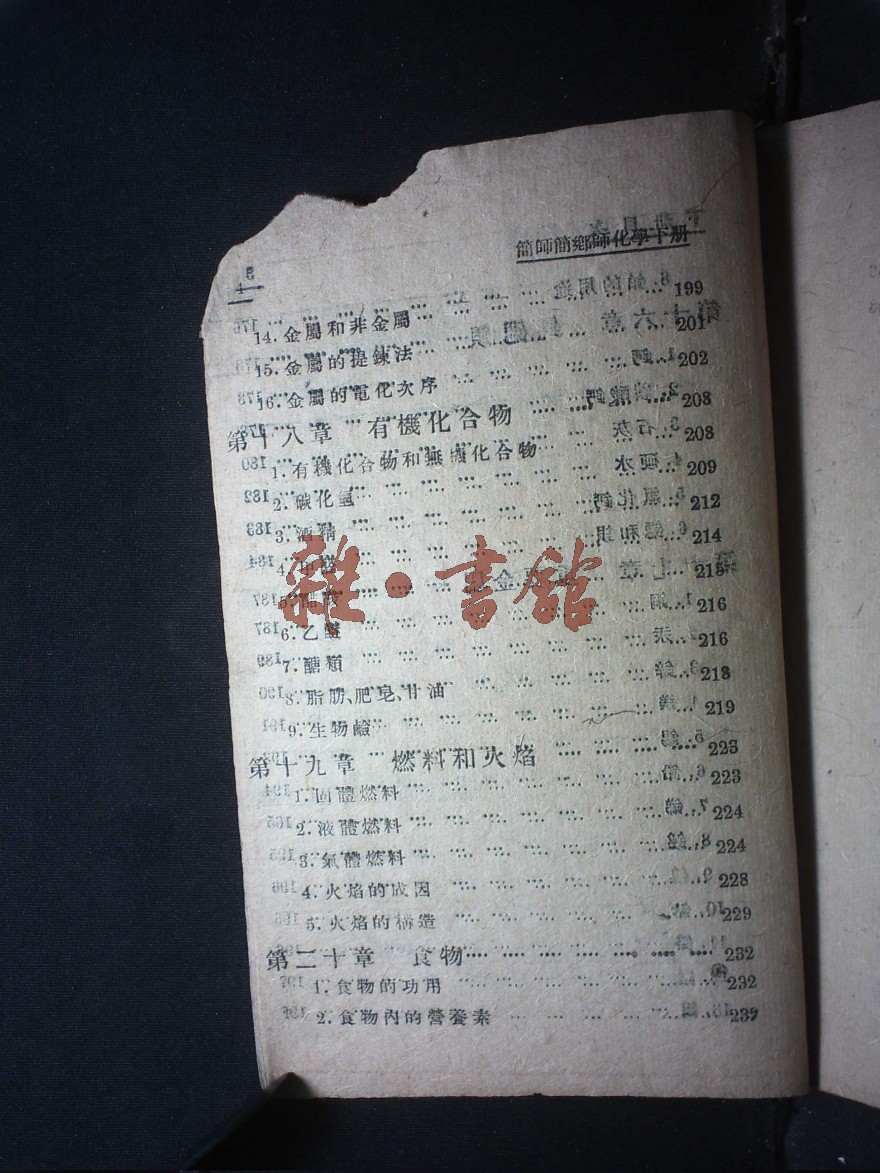 簡師簡鄉師化學下册
14. 金屬和非金屬 199
15. 金屬的提鍊法 201
16. 金屬的電化次序 202
第十八章 有機化合物 208
1. 有機化合物和無機化合物 208
2. 碳化氫 209
3. 酒精 212
4. 214
5. 215
6. 乙醚 216
7. 醣類 216
8. 脂肪、肥皂、甘油 218
9. 生物鹼 219
第十九章 燃料和火焰 223
1. 固體燃料 223
2. 液體燃料 224
3. 氣體燃料 224
4. 火焰的成因 228
5. 火焰的構造 229
第二十章 食物 232
1. 食物的功用 232
2. 食物內的營養素 239
雜·書館